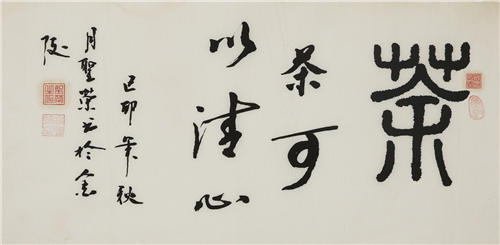 茶
茶可
以清心
己卯年秋
月聖榮书於金
陵